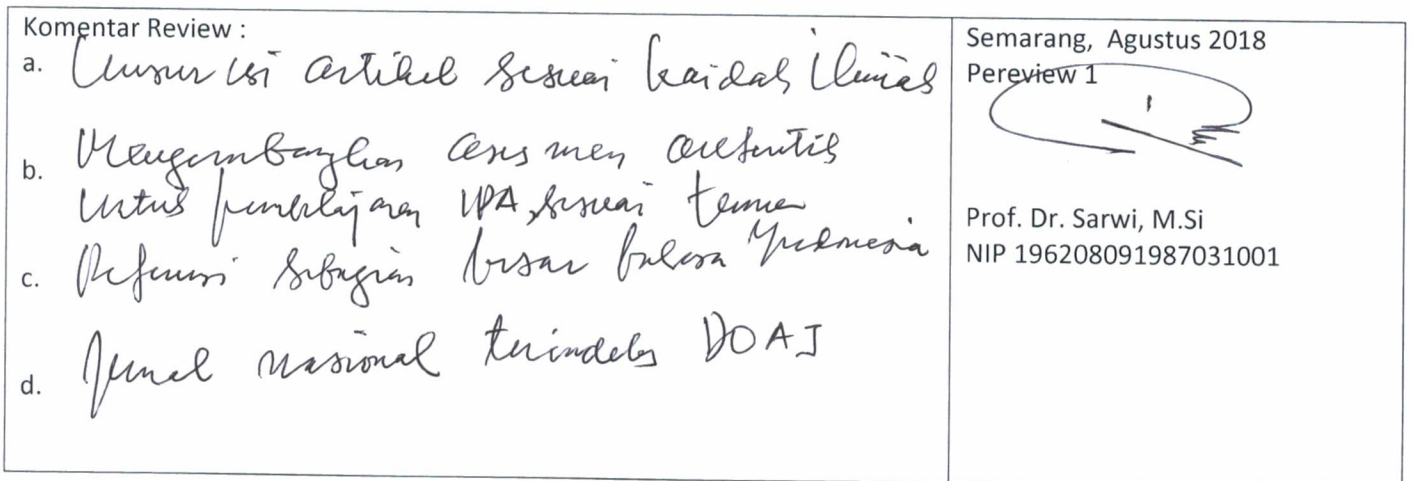 Komentar Review :
a. Unsur isi artikel sesuai kaidah ilmiah
b. Mengembangkan asesmen autentik
untuk pembelajaran IPA, sesuai temua
c. Referensi sebagian besar bahasa Indonesia
d. Jurnal nasional terindeks DOAJ
Semarang, Agustus 2018
Pereview 1
Prof. Dr. Sarwi, M.Si
NIP 196208091987031001